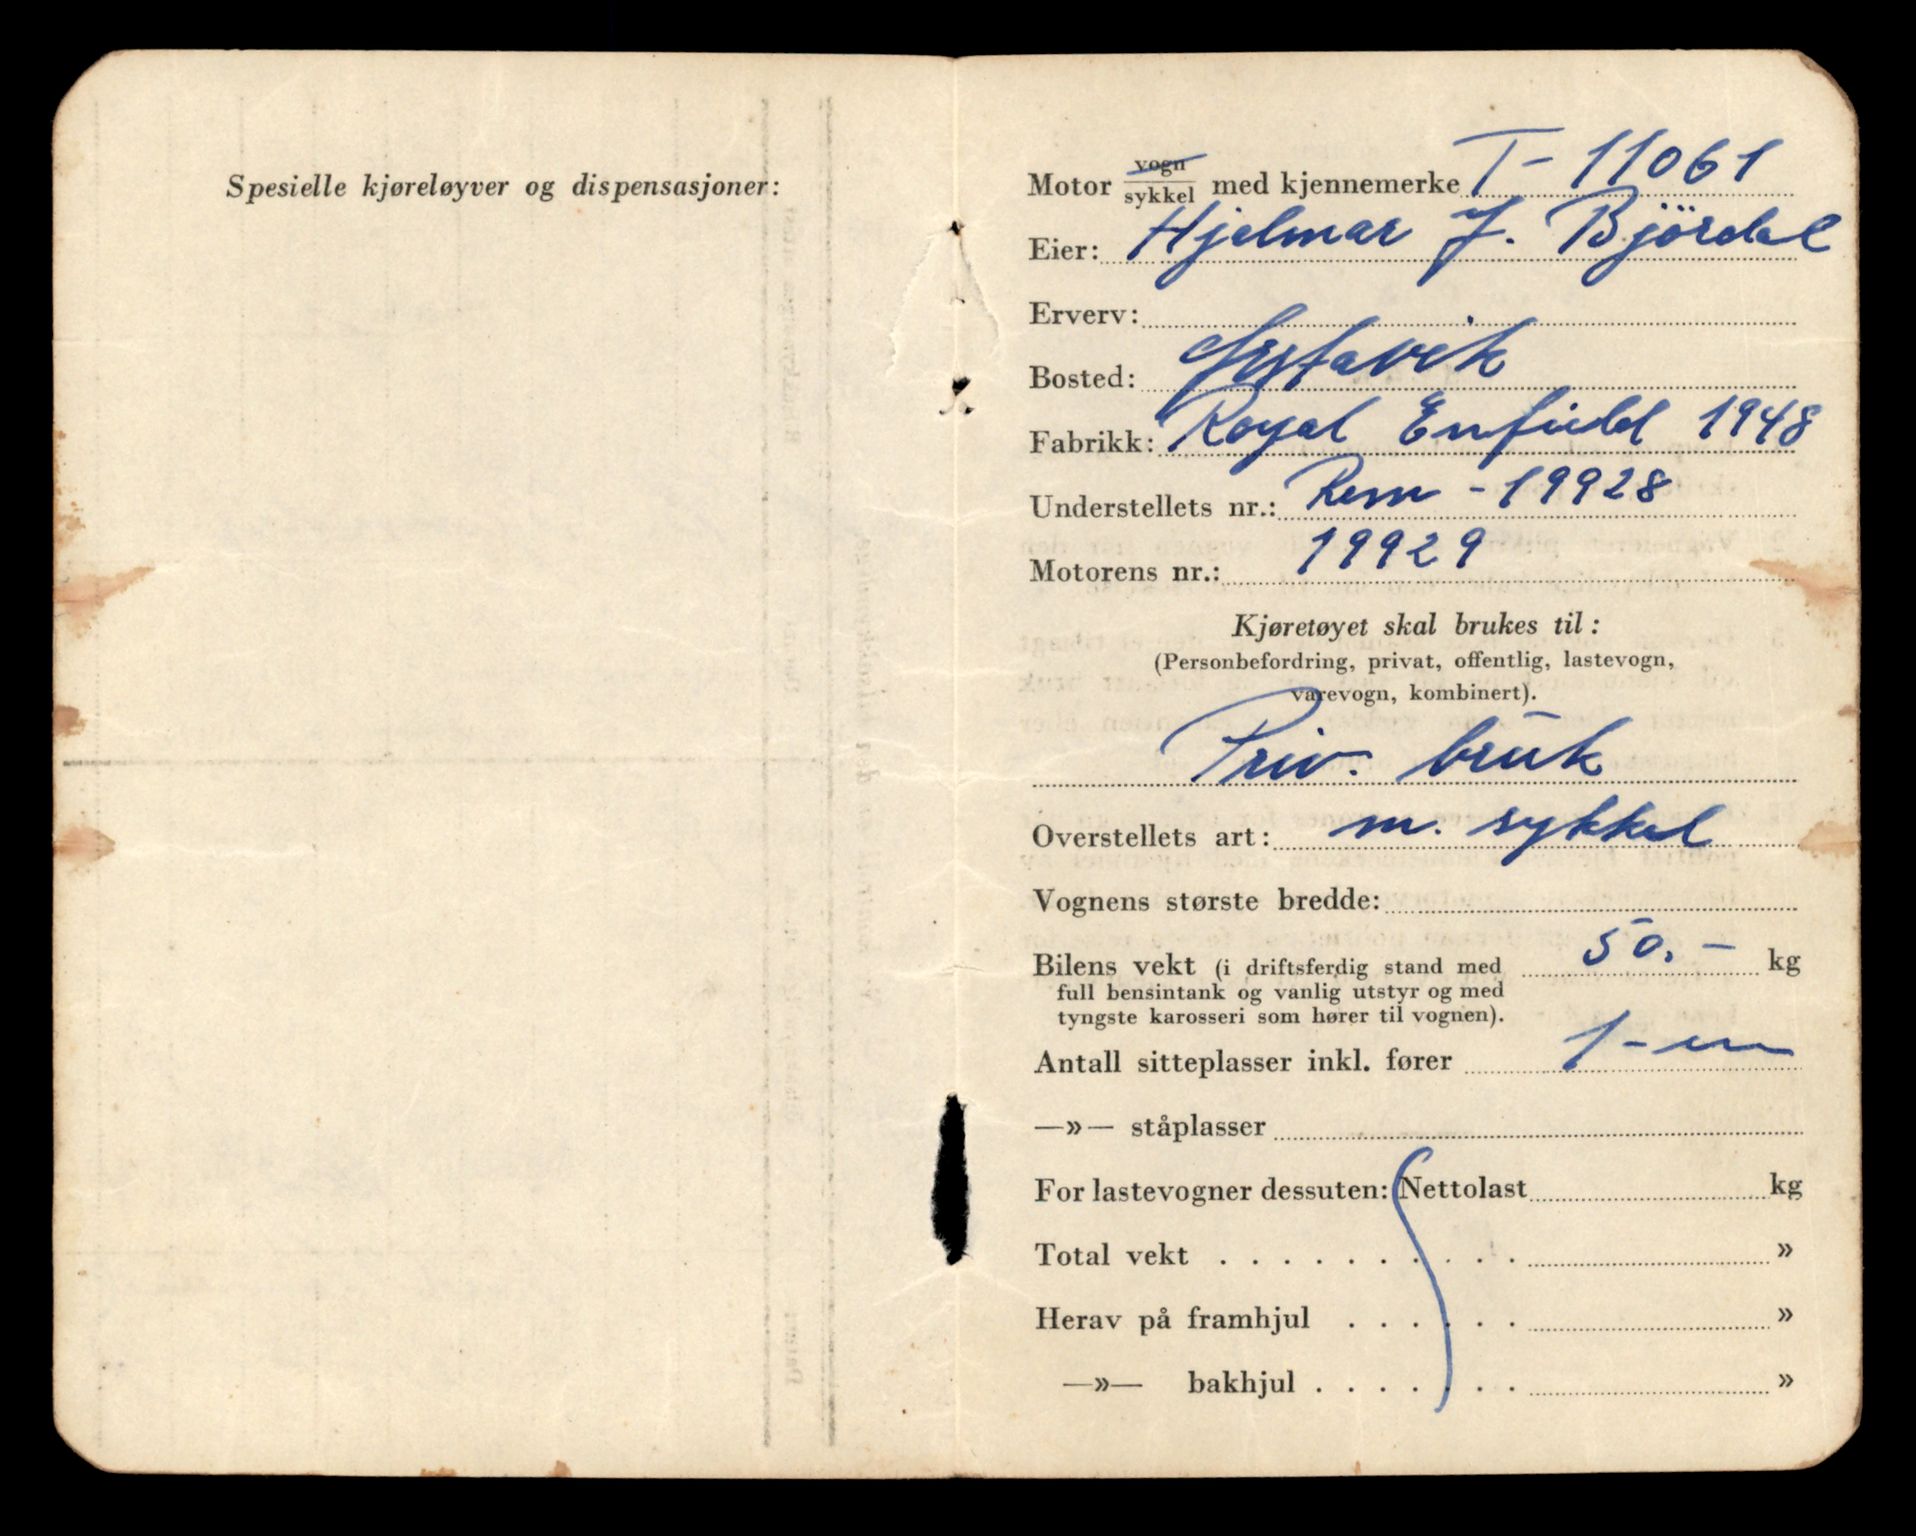 Spesielle kjøreløyver og dispensasjoner:
Motor vogn/sykkel med kjennemerke T - 11061
Eier: Hjalmar J. Björdal
Erverv:
Bosted:
Fabrikk: Royal Enfield 1948
Understellets nr.: Rem - 19928
Motorens nr.: 19929
Kjøretøyet skal brukes til:
(Personbefordring, privat, offentlig, lastevogn,
varevogn, kombinert).
Priv. bruk
Overstellets art: m. sykkel
Vognens største bredde:
Bilens vekt (i driftsferdig stand med 50.- kg
full bensintank og vanlig utstyr og med
tyngste karosseri som hører til vognen).
Antall sitteplasser inkl. fører 1 - en
—»— ståplasser
For lastevogner dessuten: Nettolast kg
Total vekt . . . . . . . . . . »
Herav på framhjul . . . . . . »
—»— bakhjul . . . . . . . »